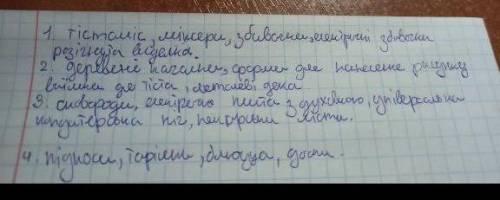 1. тістоміс, міксери, збивачки, електричні збивачки
2. деревені качалки, форми для нанесене рисунку
виїмки для тіста, металеві дека
3. сковороди, електрична плита з духовкою, універсальна
кондитерська піч, пекарські листи.
4. підноси, тарілки, блюдца, дошки.